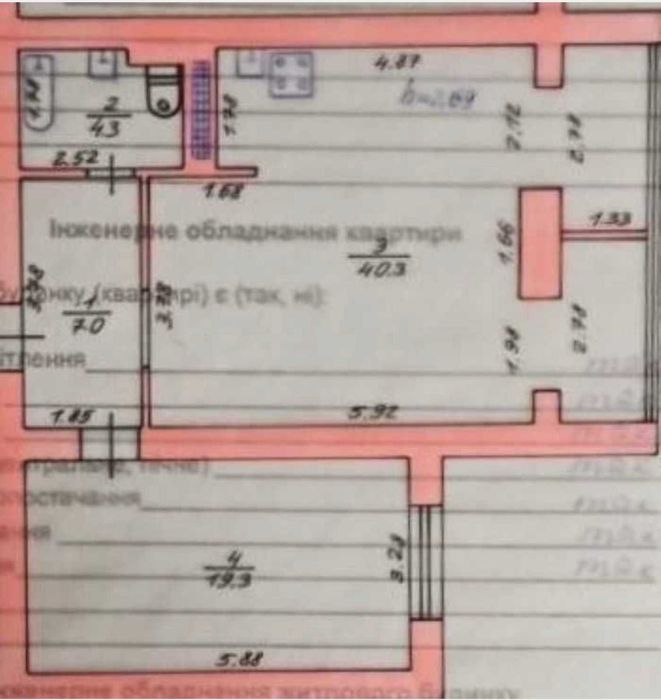 4.87
h=2,69
1.78
2
4.3
1.78
2.12
2.78
2.52
1.68
1.33
Інженерне обладнання квартири
3
40.3
1.66
3.78
1
7.0
3.78
(квартирі) є (так, ні):
1.94
2.78
1.85
5.92
4
19.3
3.28
5.88
обладнання житлового будинку